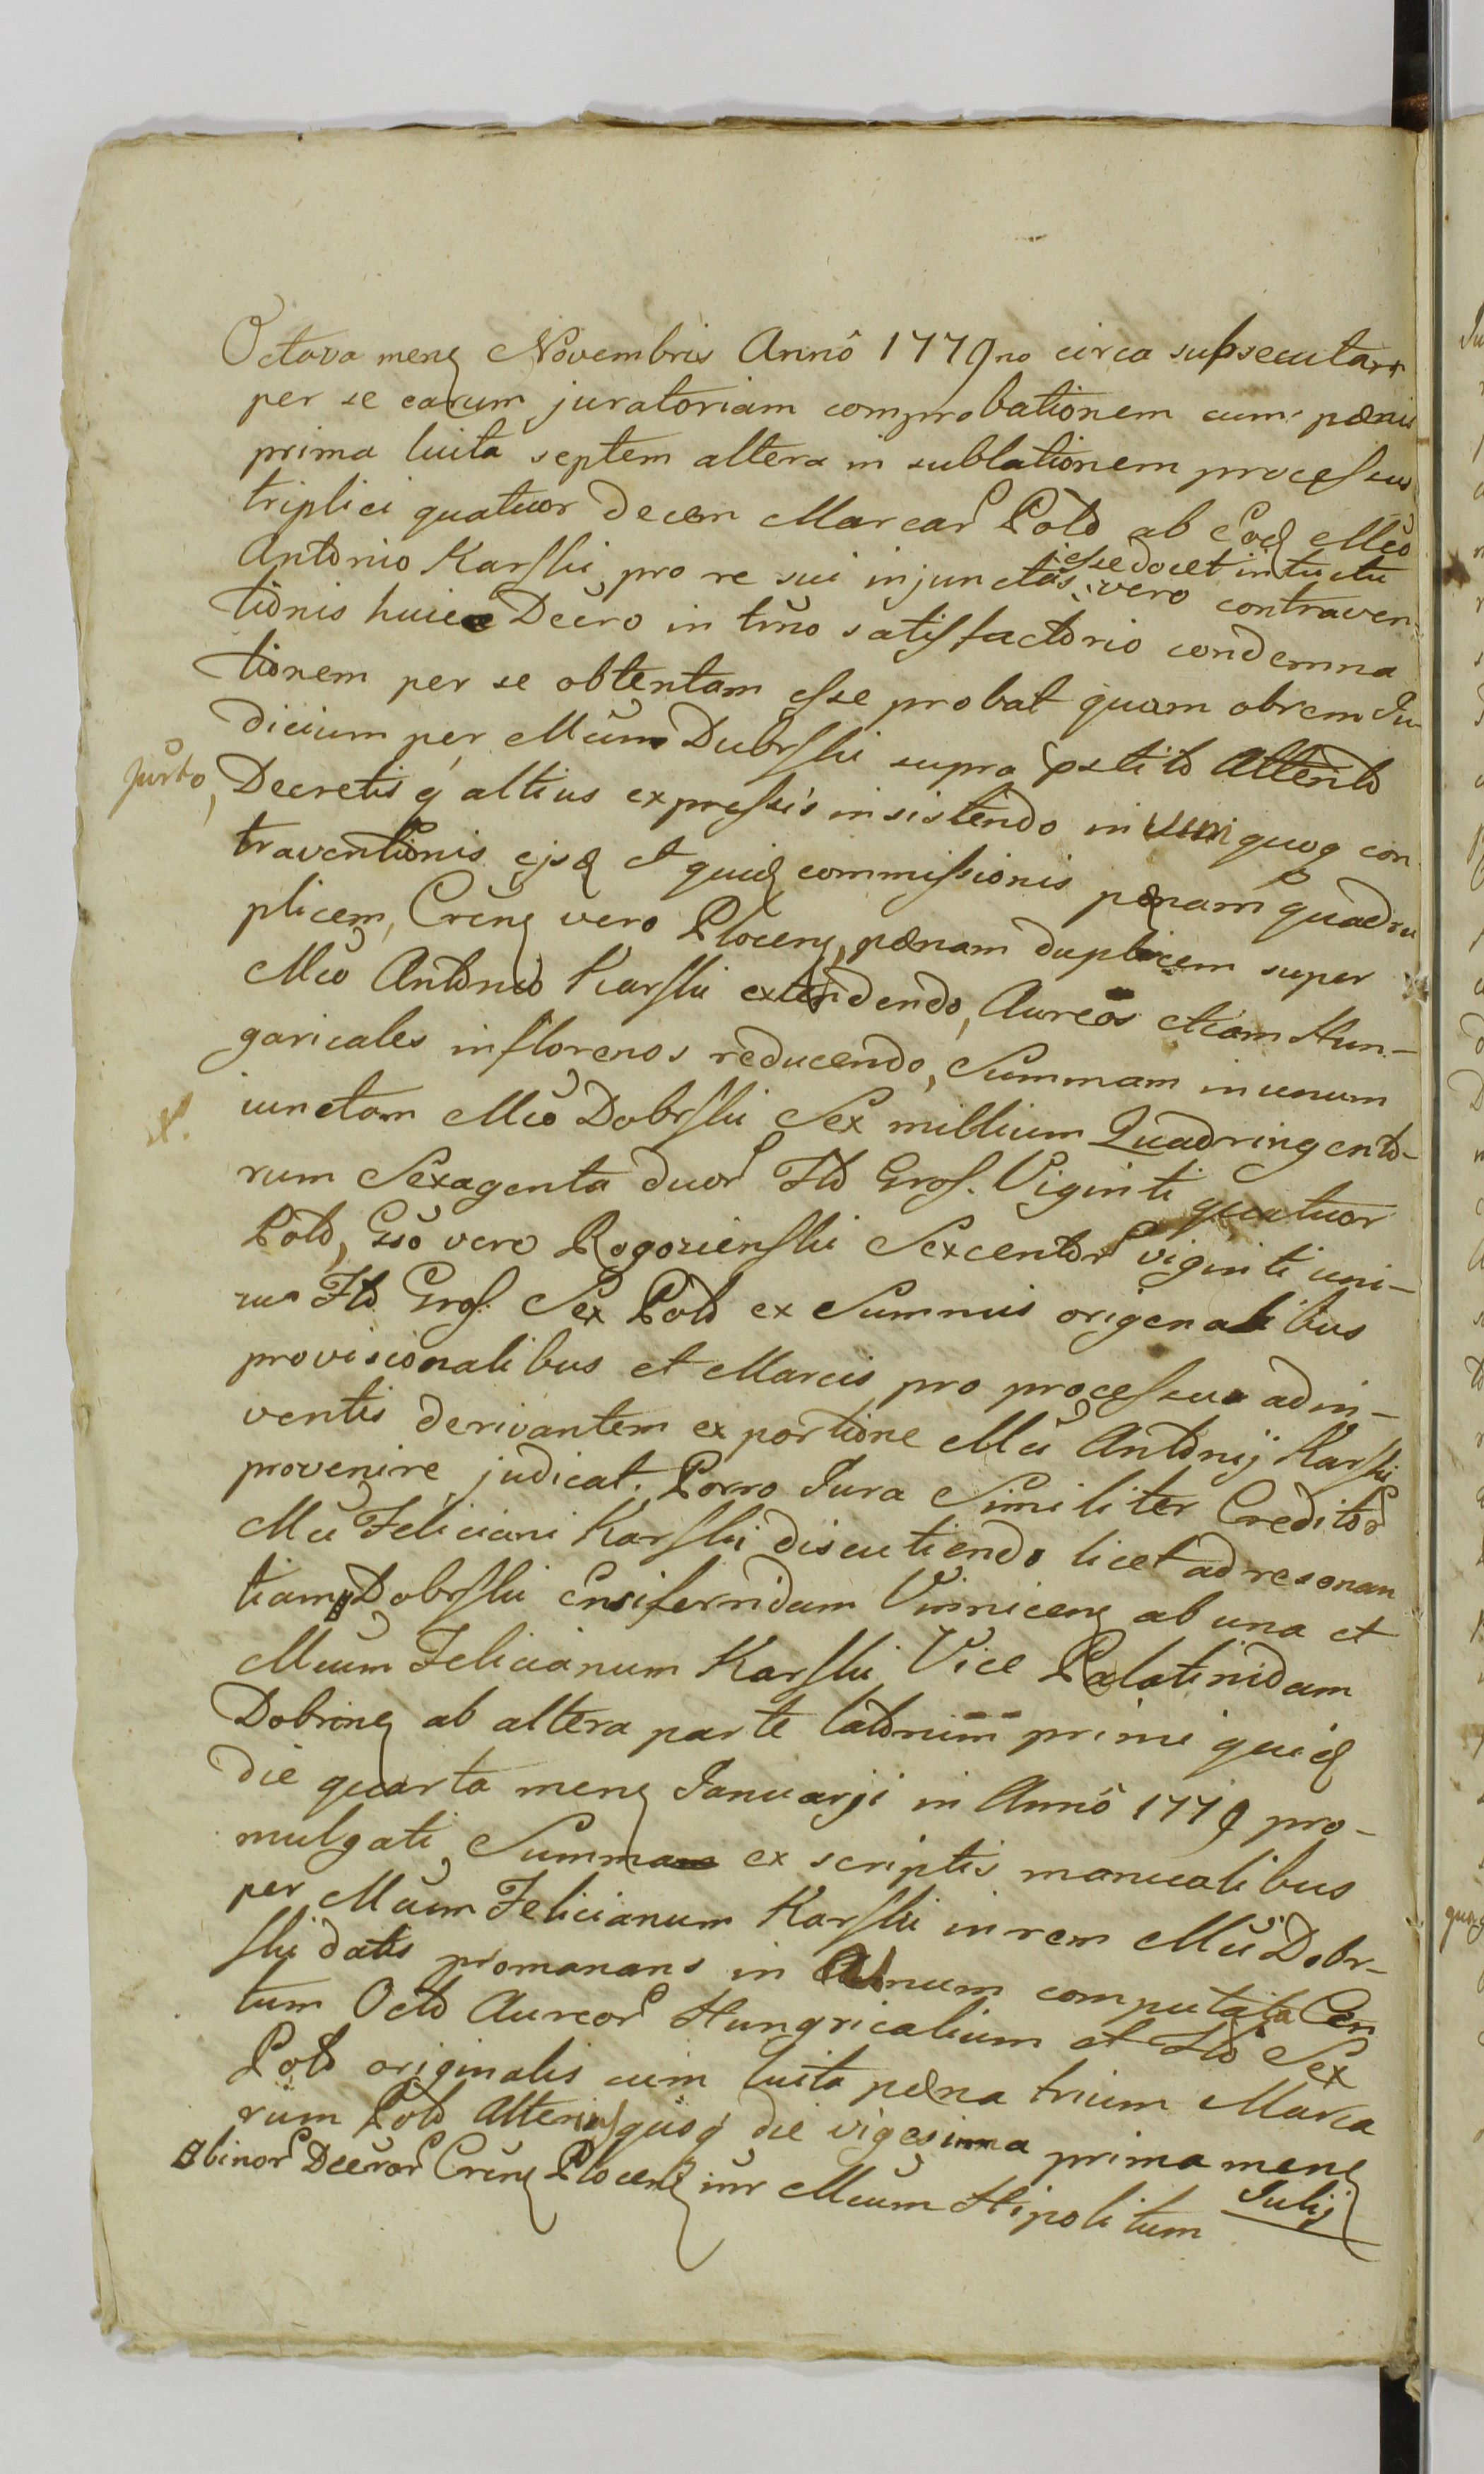 Octava mens Novembris Annô 1779no circa subsecutam
per se earum juratoriam comprobationem cum pænis
prima luita septem altera in sublationem processus
triplici quatuor decem Marcar Pold ab Eod Mco
Antonio Karski pro re sui injunctas esse docet intuitu vero contraven-
tionis huice Decro in tmo satisfactorio condemna
tionem per se obtentam esse probat quam obrem Iu-
dicium per Mcum Dubrski supra pstito Attento
Jurto, Decretis q altius expressis insistendo in uni quoq con-
traventionis ejsd et quid commissionis pænam quadru
plicem, Crens vero Plocens, pænam duplicem super
Mco Antonio Karski extendendo, Aureos etiam Hun-
garicales in florenos reducendo, Summam in unum
iunctam Mco Dobrski Sex millium Quadringento-
rum Sexagenta duor Fld Gros. Viginti quatuor
Pold, Gso vero Rogozienski Sexcentor viginti uni-
us Fld Gros. Sex Pold ex Summis origenalibus
provisionalibus et Marcis pro processu adin-
ventis derivantem ex portione Mci Antonij Karski
provenire judicat. Porro Iura Similiter Creditor
Mci Feliciani Karski discutiendo licet ad resonan
tiam Dobrski Ensiferridam Vinnicens ab una et
Mcum Felicianum Karski Vice Palatinidam
Dobrine ab altera parte latorum primi quid
die quarta mens Januarji in Annô 1779 pro-
mulgati Summa ex scriptis manualibus
per Mcum Felicianum Karski in rem Mci Dobr-
ski datis promanans in Unum computata Cen
tum Octo Aureor Hungricalium et Fld Sex
Pold originalis cum luita pæna trium Marca
rum Pold Alterius quoq die vigesima prima mens
Julij
binor Decror Crens Plocens inr Mcum Hipolitum